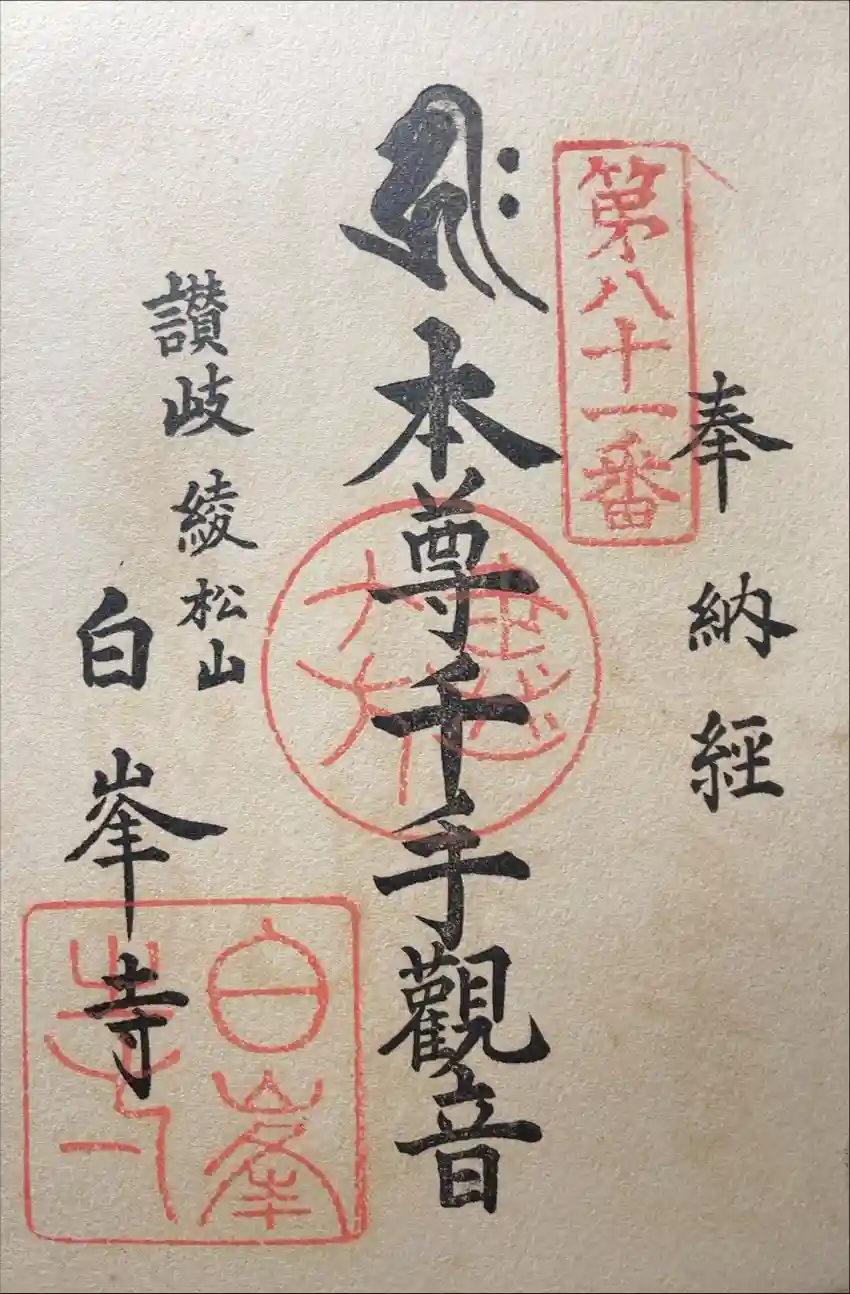 奉納経
第八十一番
本尊千手觀音
讃岐綾松山
白峯寺
白峯寺